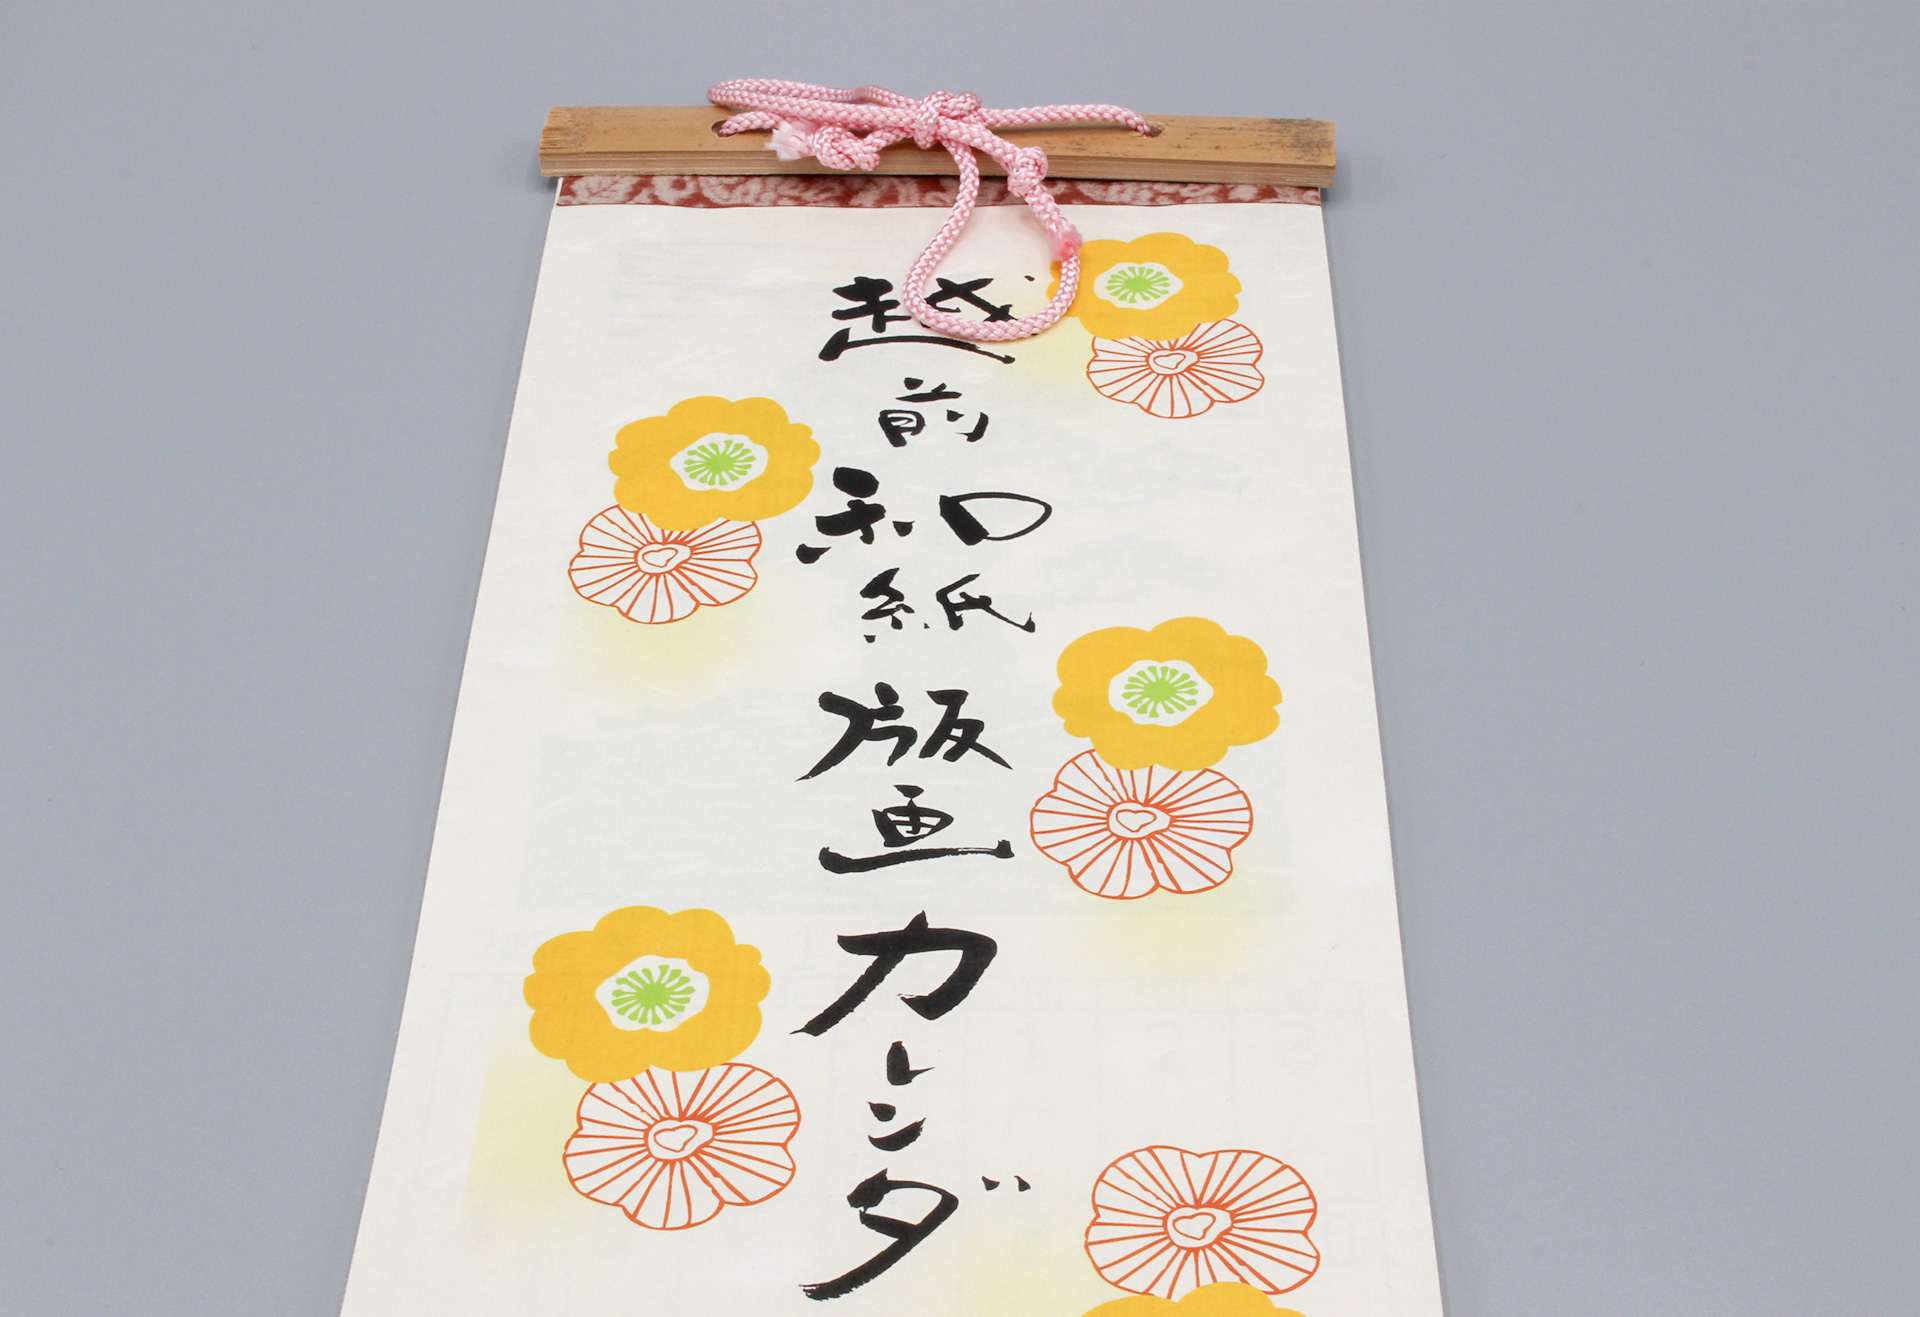 越前和紙版画カレンダ